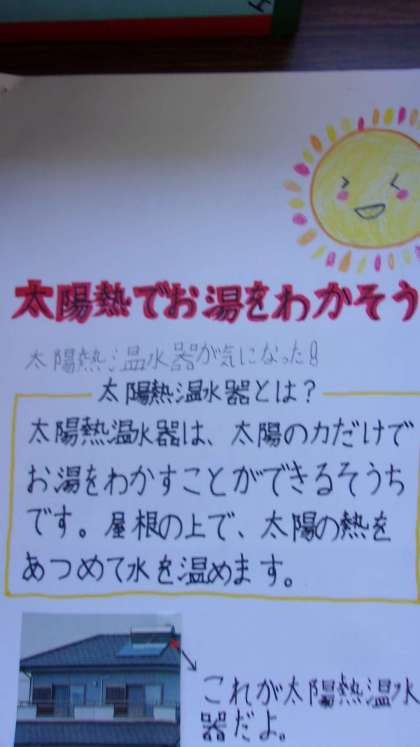 太陽熱でお湯をわかそう
太陽熱温水器が気になった!
太陽熱温水器とは？
太陽熱温水器は、太陽の力だけで
お湯をわかすことができるそうち
です。屋根の上で、太陽の熱を
あつめて水を温めます。
これが太陽熱温水
器だよ。